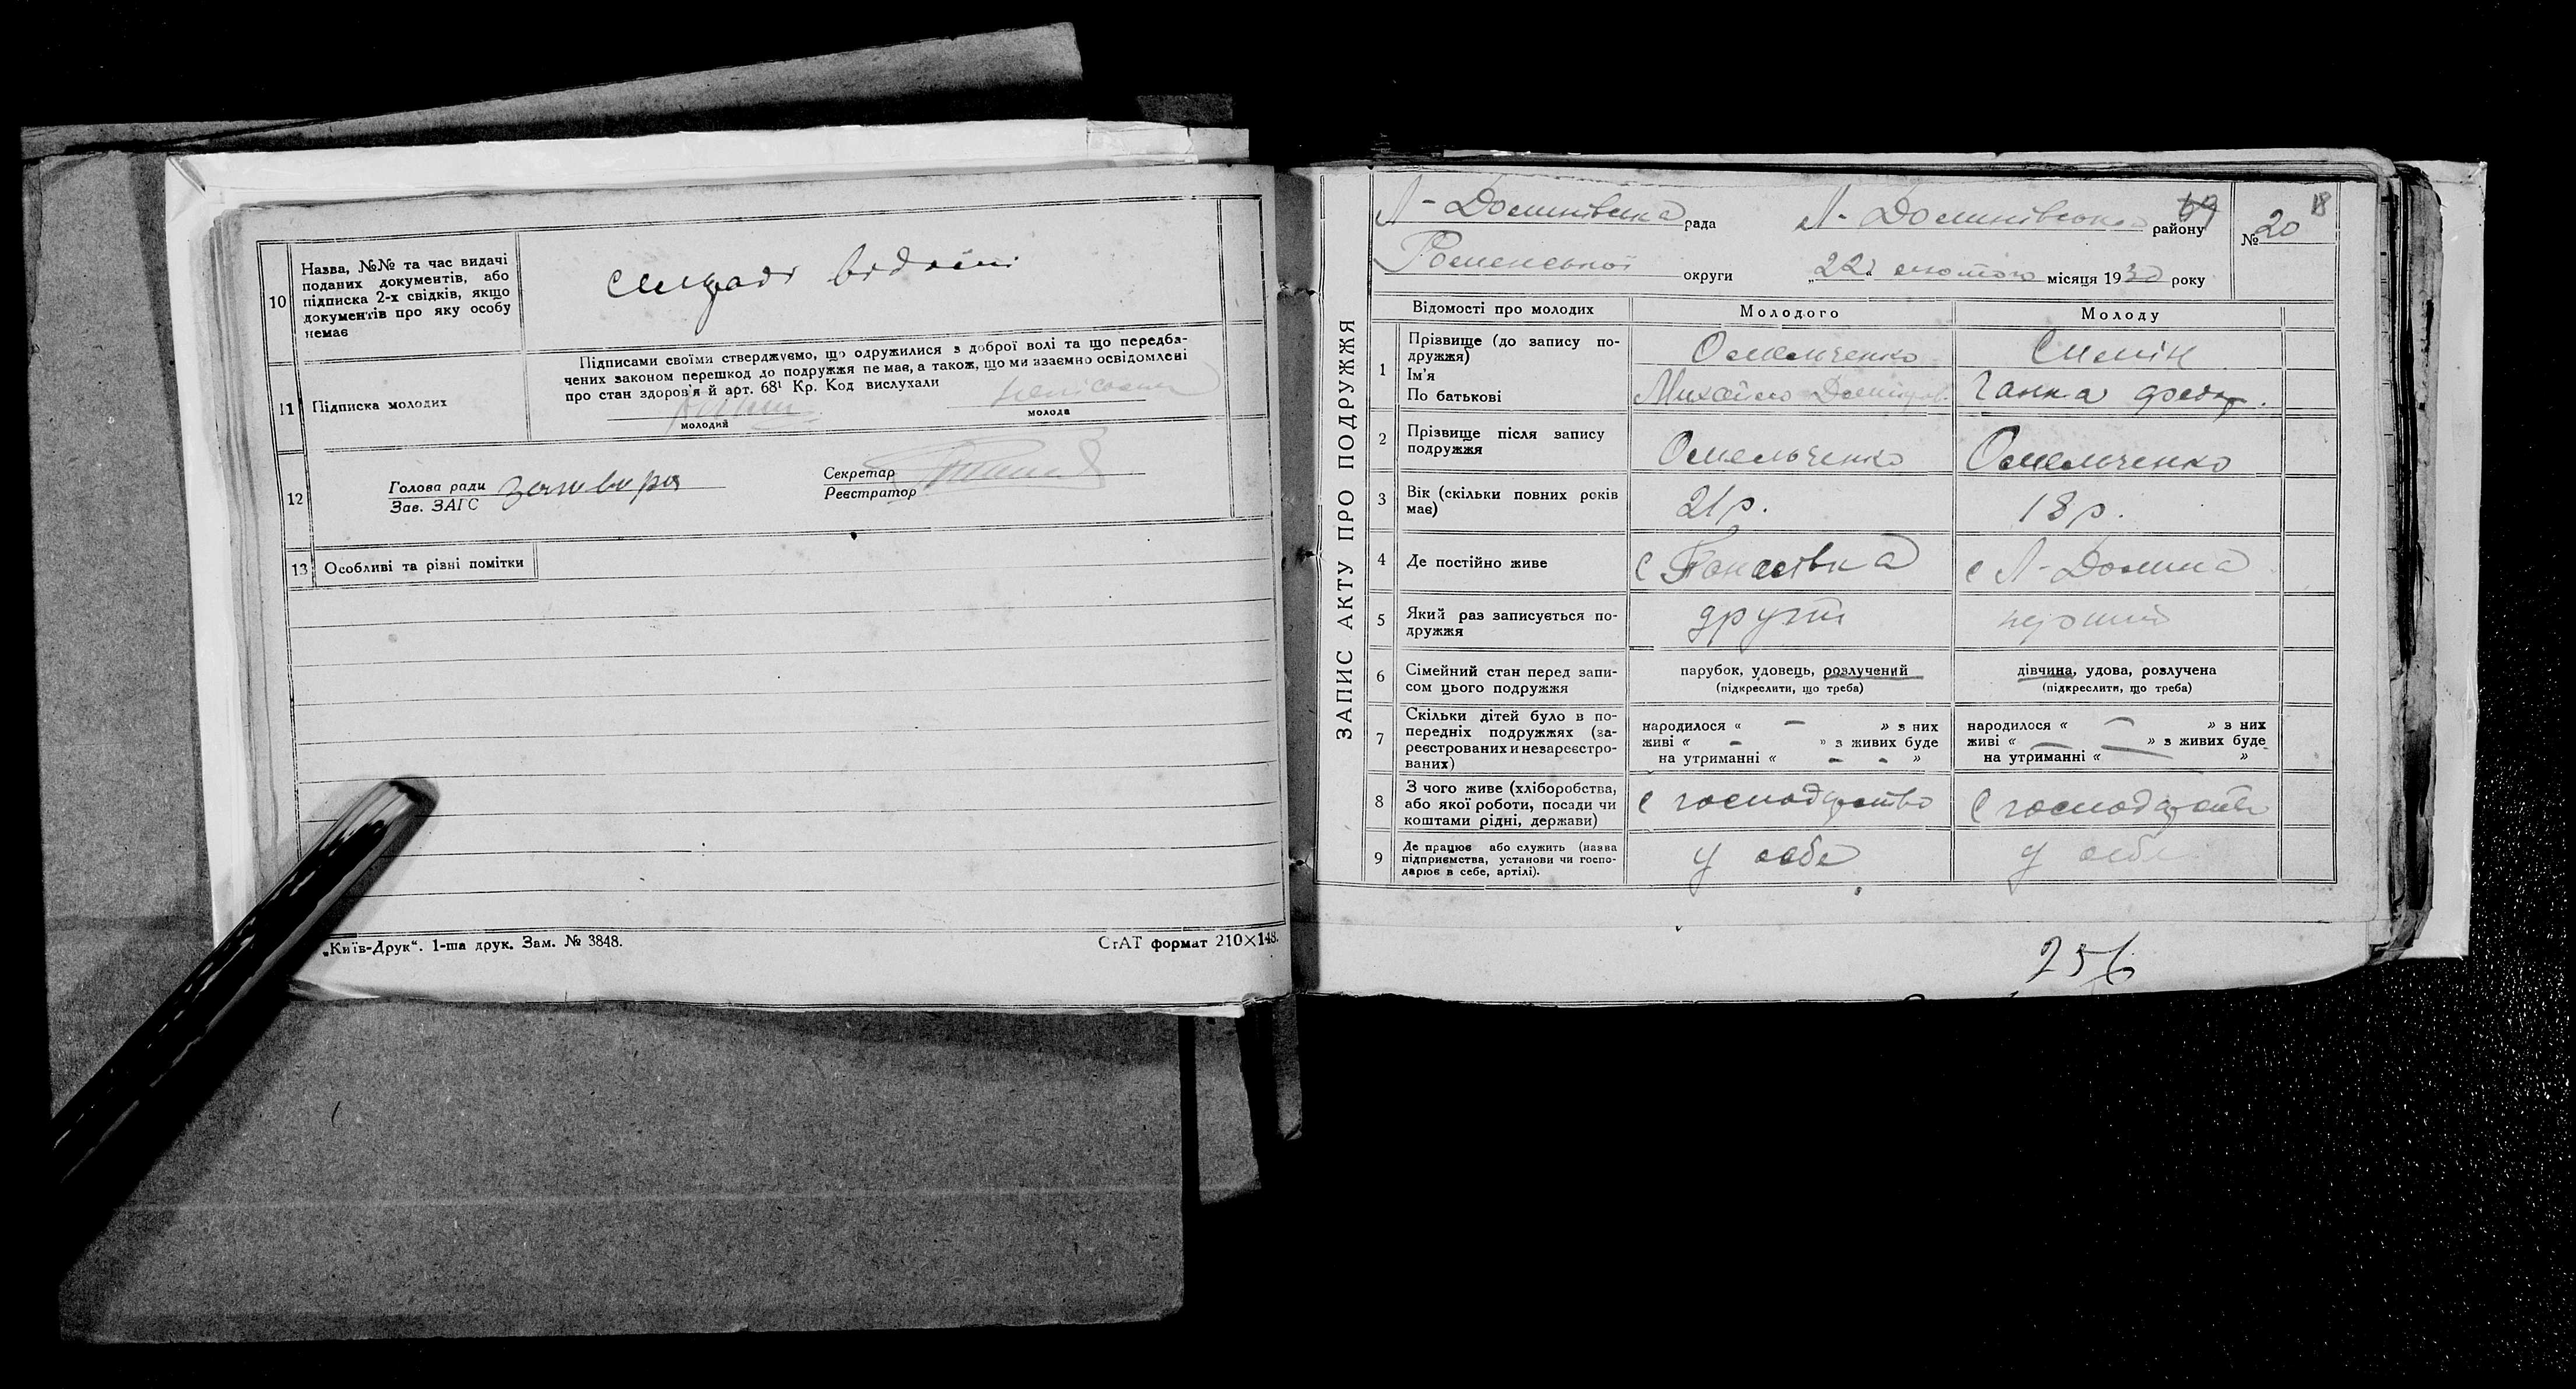 10
Назва, №№ та час видачі
поданих документів, або
підписка 2-х свідків, якщо
документів про яку особу
немає
сельради відомі
11
Підписка молодих
Підписами своїми стверджуємо, що одружилися з доброї волі та що передба-
чених законом перешкод до подружжя не має, а також, що ми взаємно освідомлені
про стан здоров'я й арт. 68¹ Кр. Код вислухали
молодий
молода
12
Голова ради
Зав. ЗАГС
Секретар
Реєстратор
13
Особливі та різні помітки
„Київ-Друк“. 1-ша друк. Зам. № 3848.
СтАТ формат 210×148.
ЗАПИС АКТУ ПРО ПОДРУЖЖЯ
Л-Долинівська рада Л-Долинівського району
№ 20
18
69
Роменської округи „22“ лютого місяця 1930 року
Відомості про молодих
Молодого
Молоду
1
Прізвище (до запису по-
дружжя)
Ім'я
По батькові
Омельченко
Михайло
Ганна Федор.
2
Прізвище після запису
подружжя
Омельченко
Омельченко
3
Вік (скільки повних років
має)
21р.
18р.
4
Де постійно живе
с Панасівка
с Л-Долина
5
Який раз записується по-
дружжя
другий
перший
6
Сімейний стан перед запи-
сом цього подружжя
парубок, удовець, розлучений
(підкреслити, що треба)
дівчина, удова, розлучена
(підкреслити, що треба)
7
Скільки дітей було в по-
передніх подружжях (за-
реєстрованих и незареєстро-
ваних)
народилося « — » з них
живі « — » з живих буде
на утриманні « — — »
народилося « — » з них
живі « — — » з живих буде
на утриманні « — »
8
З чого живе (хліборобства,
або якої роботи, посади чи
коштами рідні, держави)
С господарство
С господарство
9
Де працює або служить (назва
підприємства, установи чи госпо-
дарює в себе, артілі).
У себе
У себе
256